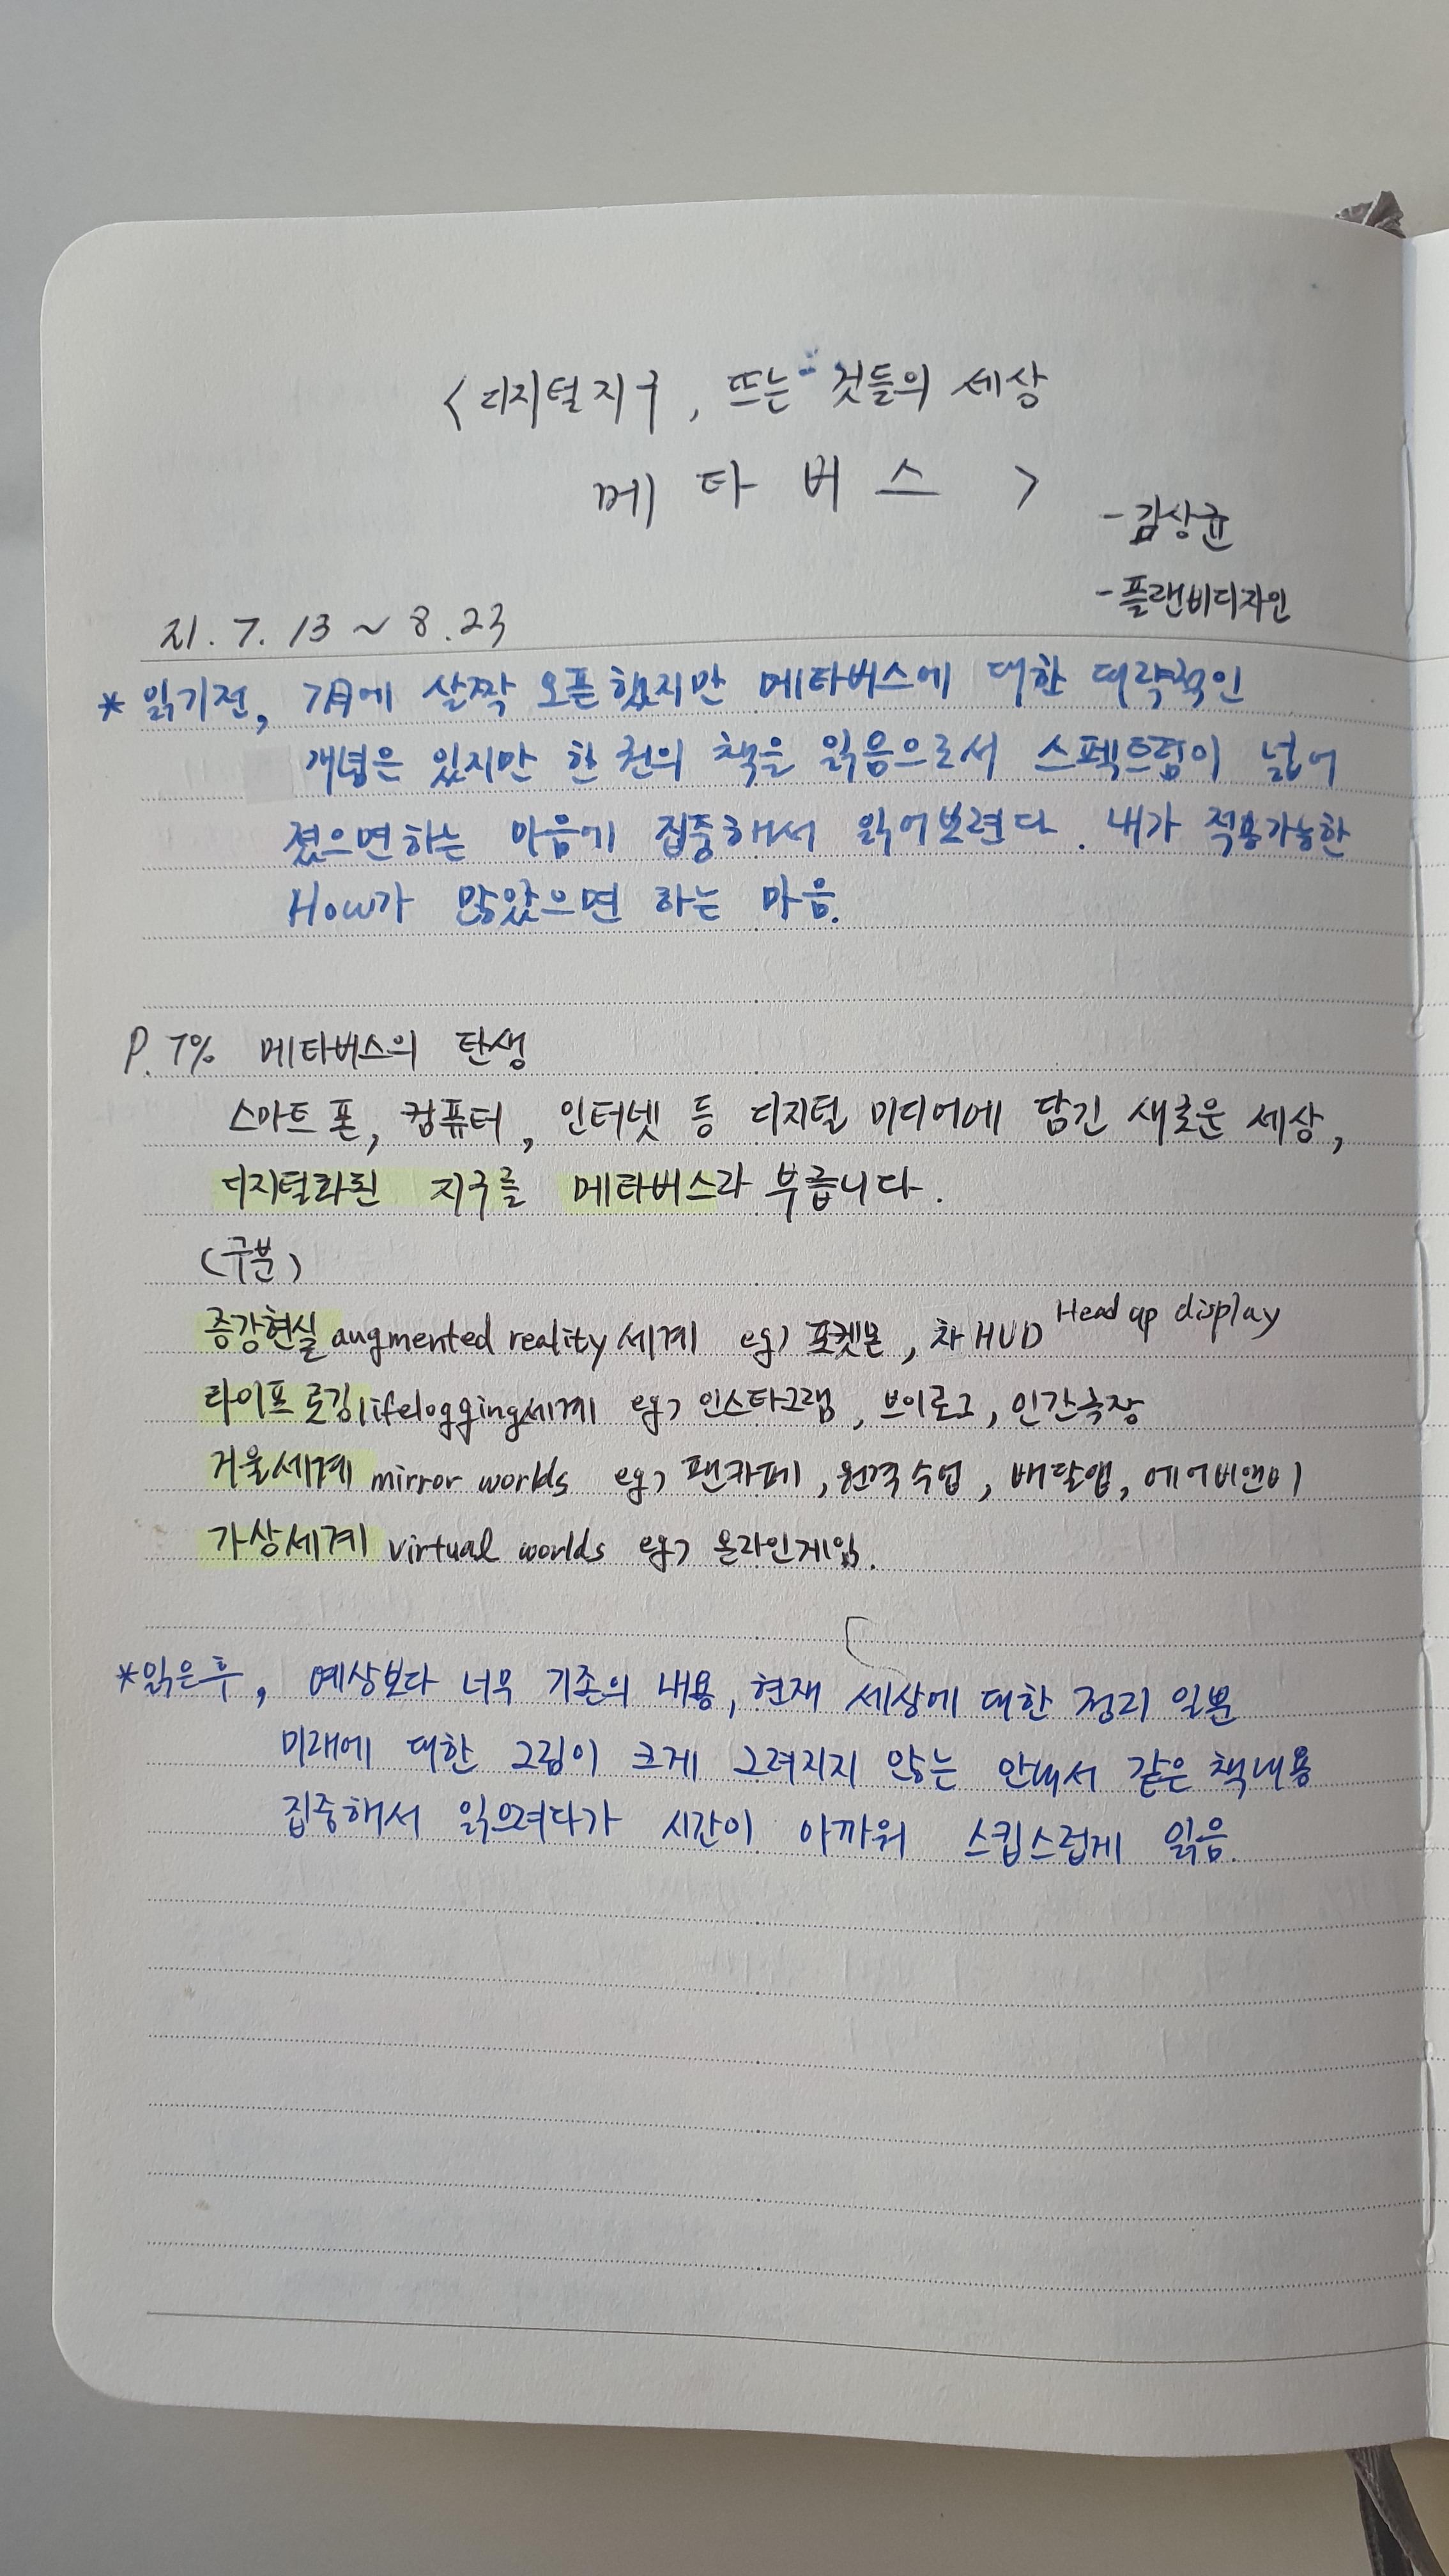 <디지털지구, 뜨는 것들의 세상
메타버스>
-김상균
-플랜비디자인
21.7.13 ~ 8.23
* 읽기전, 7月에 살짝 오픈했지만 메타버스에 대한 대략적인
개념은 있지만 한 권의 책을 읽음으로서 스펙트럼이 넓어
졌으면하는 마음에 집중해서 읽어보련다. 내가 적용가능한
How가 많았으면 하는 마음.
P. 7% 메타버스의 탄생
스마트폰, 컴퓨터, 인터넷 등 디지털 미디어에 담긴 새로운 세상,
디지털화된 지구를 메타버스라 부릅니다.
(구분)
증강현실 augmented reality 세계 eg) 포켓몬, 차 HUD Head up display
라이프로깅 lifelogging 세계 eg) 인스타그램, 브이로그, 인간극장
거울세계 mirror worlds eg) 팬카페, 원격수업, 배달앱, 에어비앤비
가상세계 virtual worlds eg) 온라인게임.
*읽은후, 예상보다 너무 기존의 내용, 현재 세상에 대한 정리 일뿐
미래에 대한 그림이 크게 그려지지 않는 안내서 같은 책내용
집중해서 읽으려다가 시간이 아까워 스킵스럽게 읽음.